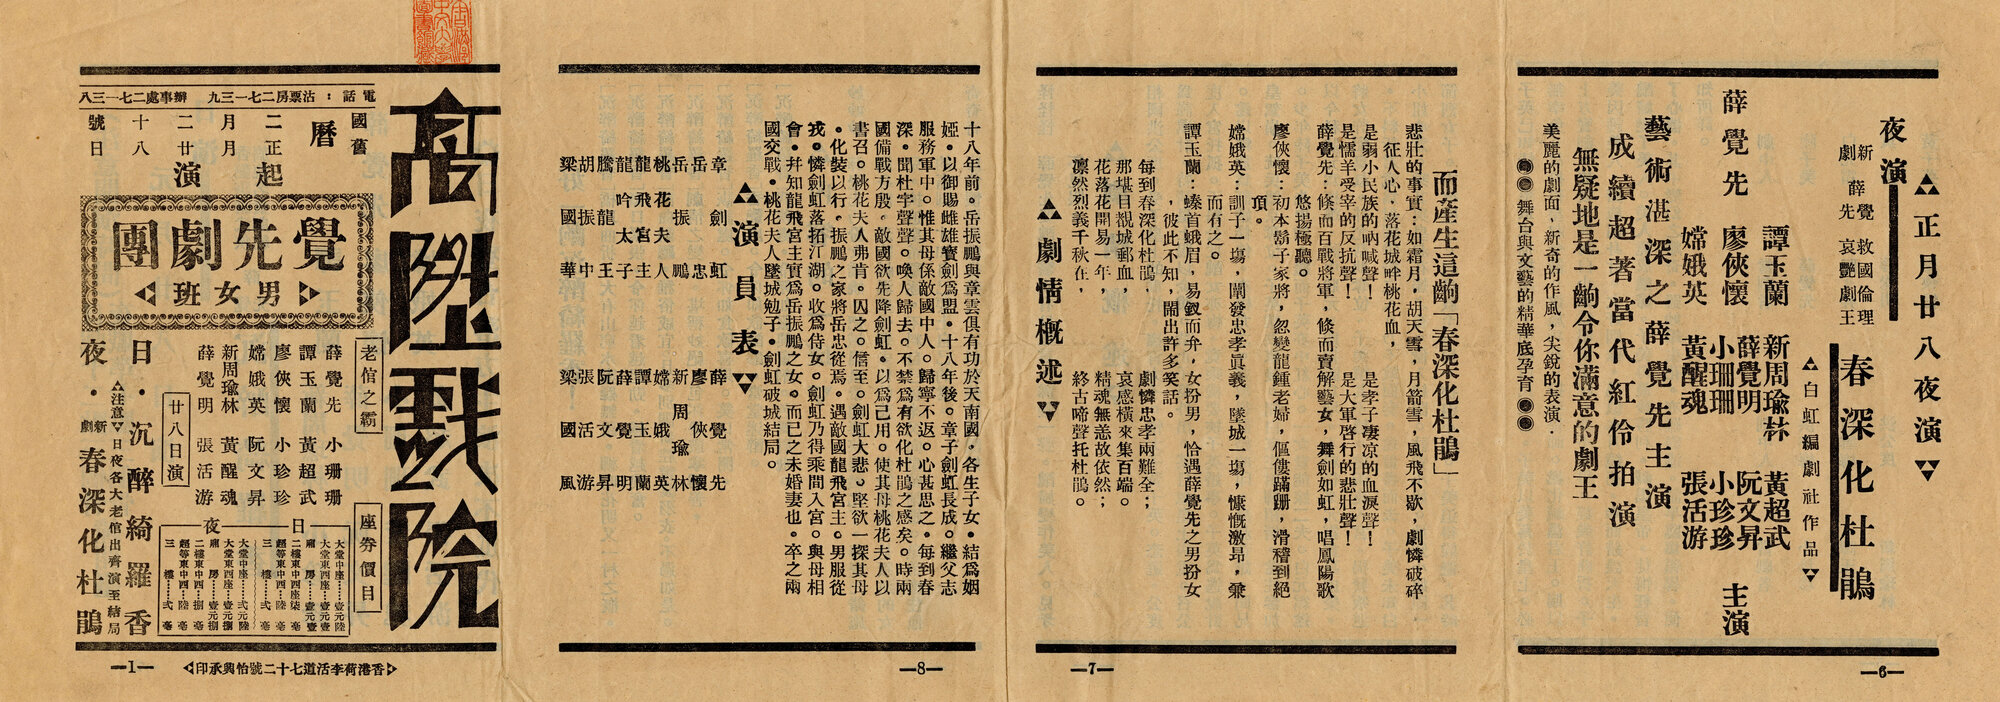 ▵正月廿八夜演▿
夜演
新劇
薛覺先
救國倫理
哀艷劇王
春深化杜鵑
▵白虹編劇社作品▿
薛覺先
譚玉蘭
廖俠懷
嫦娥英
新周瑜林
薛覺明
小珊珊
黃醒魂
黃超武
阮文昇
小珍珍
張活游
主演
藝術湛深之薛覺先主演
成績超著當代紅伶拍演
無疑地是一齣令你滿意的劇王
美麗的劇面，新奇的作風，尖銳的表演．
舞台與文藝的精華底孕育
—6—
而產生這齣「春深化杜鵑」
悲壯的事實：如霜月，胡天雪，月箭雪，風飛不歇，劇憐破碎
征人心，落花城畔桃花血，
是弱小民族的吶喊聲！　是孝子凄凉的血淚聲！
是懦羊受宰的反抗聲！　是大軍啓行的悲壯聲！
薛覺先：倏而百戰將軍，倏而賣解藝女，舞劍如虹，唱鳳陽歌
悠揚極聽。
廖俠懷：初本鬍子家將，忽變龍鍾老婦，傴僂蹣跚，滑稽到絕
項。
嫦娥英：訓子一塲，闡發忠孝眞義，墜城一塲，慷慨激昂，兼
而有之。
譚玉蘭：螓首蛾眉，易釵而弁，女扮男，恰遇薛覺先之男扮女
，彼此不知，鬧出許多笑話。
每到春深化杜鵑，　劇憐忠孝兩難全；
那堪目覩城郵血，　哀感橫來集百端。
花落花開易一年，　精魂無恙故依然；
凛然烈義千秋在，　終古啼聲托杜鵑。
▵劇情概述▿
—7—
十八年前。岳振鵬與章雲俱有功於天南國。各生子女。結爲姻
婭。以御賜雌雄寶劍爲盟。十八年後。章子劍虹長成。繼父志
服務軍中。惟其母係敵國中人。歸寧不返。心甚思之。每到春
深。聞杜宇聲聲。喚人歸去。不禁爲有欲化杜鵑之感矣。時兩
國備戰方殷。敵國欲先降劍虹。以爲己用。使其母桃花夫人以
書召。桃花夫人弗肯。囚之。信至。劍虹大悲。堅欲一探其母
。化裝以行。振鵬之家將岳忠從焉。遇敵國龍飛宮主。男服從
戎。憐劍虹落拓江湖。收爲侍女。劍虹乃得乘間入宮。與母相
會。幷知龍飛宮主實爲岳振鵬之女。而已之未婚妻也。卒之兩
國交戰。桃花夫人墜城勉子。劍虹破城結局。
▵演員表▿
章劍虹　薛覺先
岳振鵬　廖俠懷
岳忠　新周瑜林
桃花夫人　嫦娥英
龍飛宮主　譚玉蘭
龍吟太子　薛覺明
騰龍王　阮文昇
胡振中　張活游
梁國華　梁國風
—8—
高陞戲院
電話：沽票房二七一三九　辦事處二七一三八
國曆二月二十號
舊曆正月廿八日
起演
覺先劇團
▹男女班◃
老倌之霸
薛覺先　小珊珊
譚玉蘭　黃超武
廖俠懷　小珍珍
嫦娥英　阮文昇
新周瑜林　黃醒魂
薛覺明　張活游
廿八日演
日．沉醉綺羅香
▵注意▿日夜各大老倌出齊演至結局
夜．新劇春深化杜鵑
座券價目
日
夜
▹香港荷李活道七十二號怡興承印◃
—1—